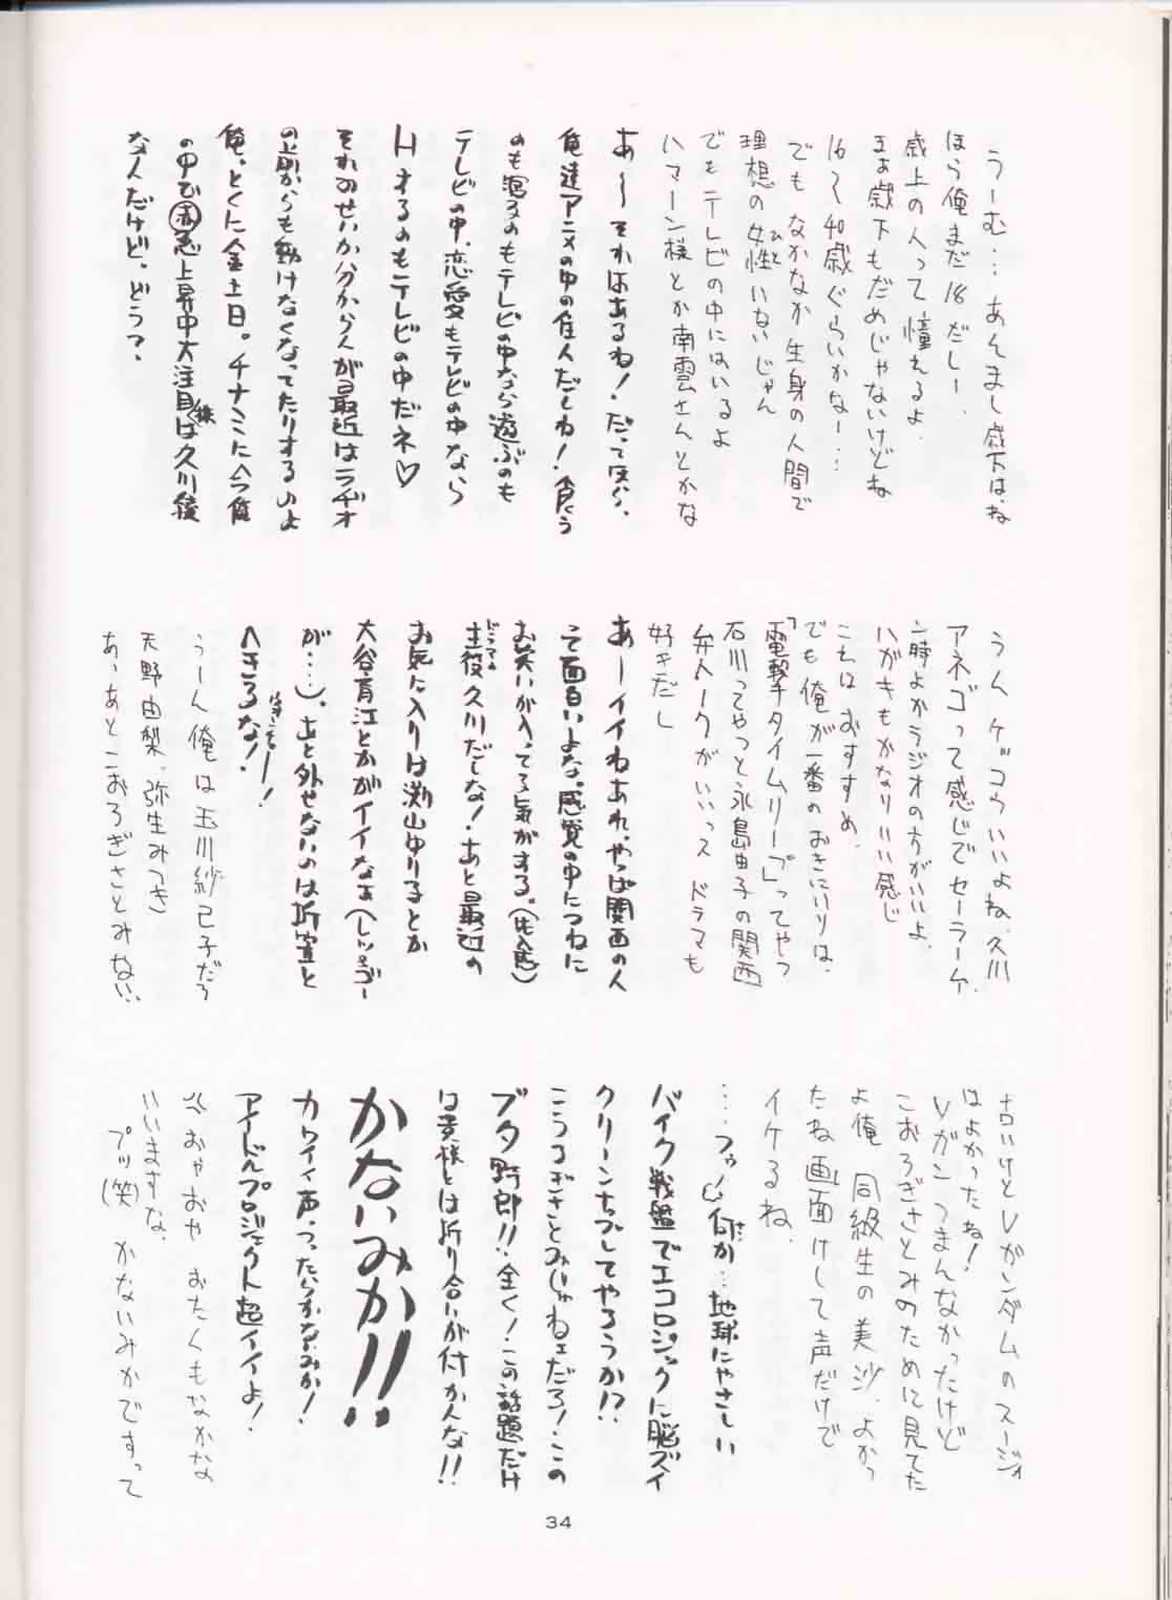 うーむ…あんまし歳下はね
ほら俺まだ18だしー、
歳上の人って憧れるよ
まぁ歳下もだめじゃないけどね
16〜40歳ぐらいかなー…
でもなかなか生身の人間で
理想の女性いないじゃん
ひと
でもテレビの中にはいるよ
ハマーン様とか南雲さんとかな
あ〜それはあるね！だって
俺達アニメの中の住人だしね！食う
のも寝るのもテレビの中なら遊ぶのも
テレビの中、恋愛もテレビの中なら
Hするのもテレビの中だネ♡
それのせいか分からんが最近はラヂオ
の前からも動けなくなってたりするのよ
俺。とくに金土日。チナミに今俺
の中で赤丸急上昇中大注目株は久川綾
なんだけど。どう？
うんケッコウいいよね、久川
アネゴって感じでセーラームーン
時よかラジオの方がいいよ
ハガキもかなりいい感じ
こちはおすすめ
でも俺が一番のおきにいりは、
「電撃タイムリープ」ってやつ
石川ってやつと永島由子の関西
弁トークがいいっス ドラマも
好きだし
あーイイねあれ、やっぱ関西の人
って面白いよな。感覚の中につねに
お笑いが入ってる気がする。
主役久川だしな！あと最近の
お気に入りは渕山ゆり子とか
大谷育江とかがイイなぁ(レッツゴー
が…)。あと外せないのは折笠と
へきるな！
うーん俺は玉川紗己子だろ
天野由梨、弥生みつき
あ、あとこおろぎさとみない、
古いけどVガンダムのスージィ
はよかったね！
Vガンつまんなかったけど
こおろぎさとみのために見てた
よ俺 同級生の美沙、よかっ
たね画面けして声だけで
イケるね、
…フゥ！何か…地球にやさしい
バイク戦艦でエコロジックに脳ズイ
クリーンナップしてやろうか!?
こうろぎさとみじゃねェだろ！この
ブタ野郎!!全く！この話題だけ
は貴様とは折り合いが付かんな!!
かないみか!!
カワイイ声つったらかないみか！
アイドルプロジェクト超イイよ！
おやおや おたくもなかなか
いいますな、
プッ(笑) かないみかですって
34